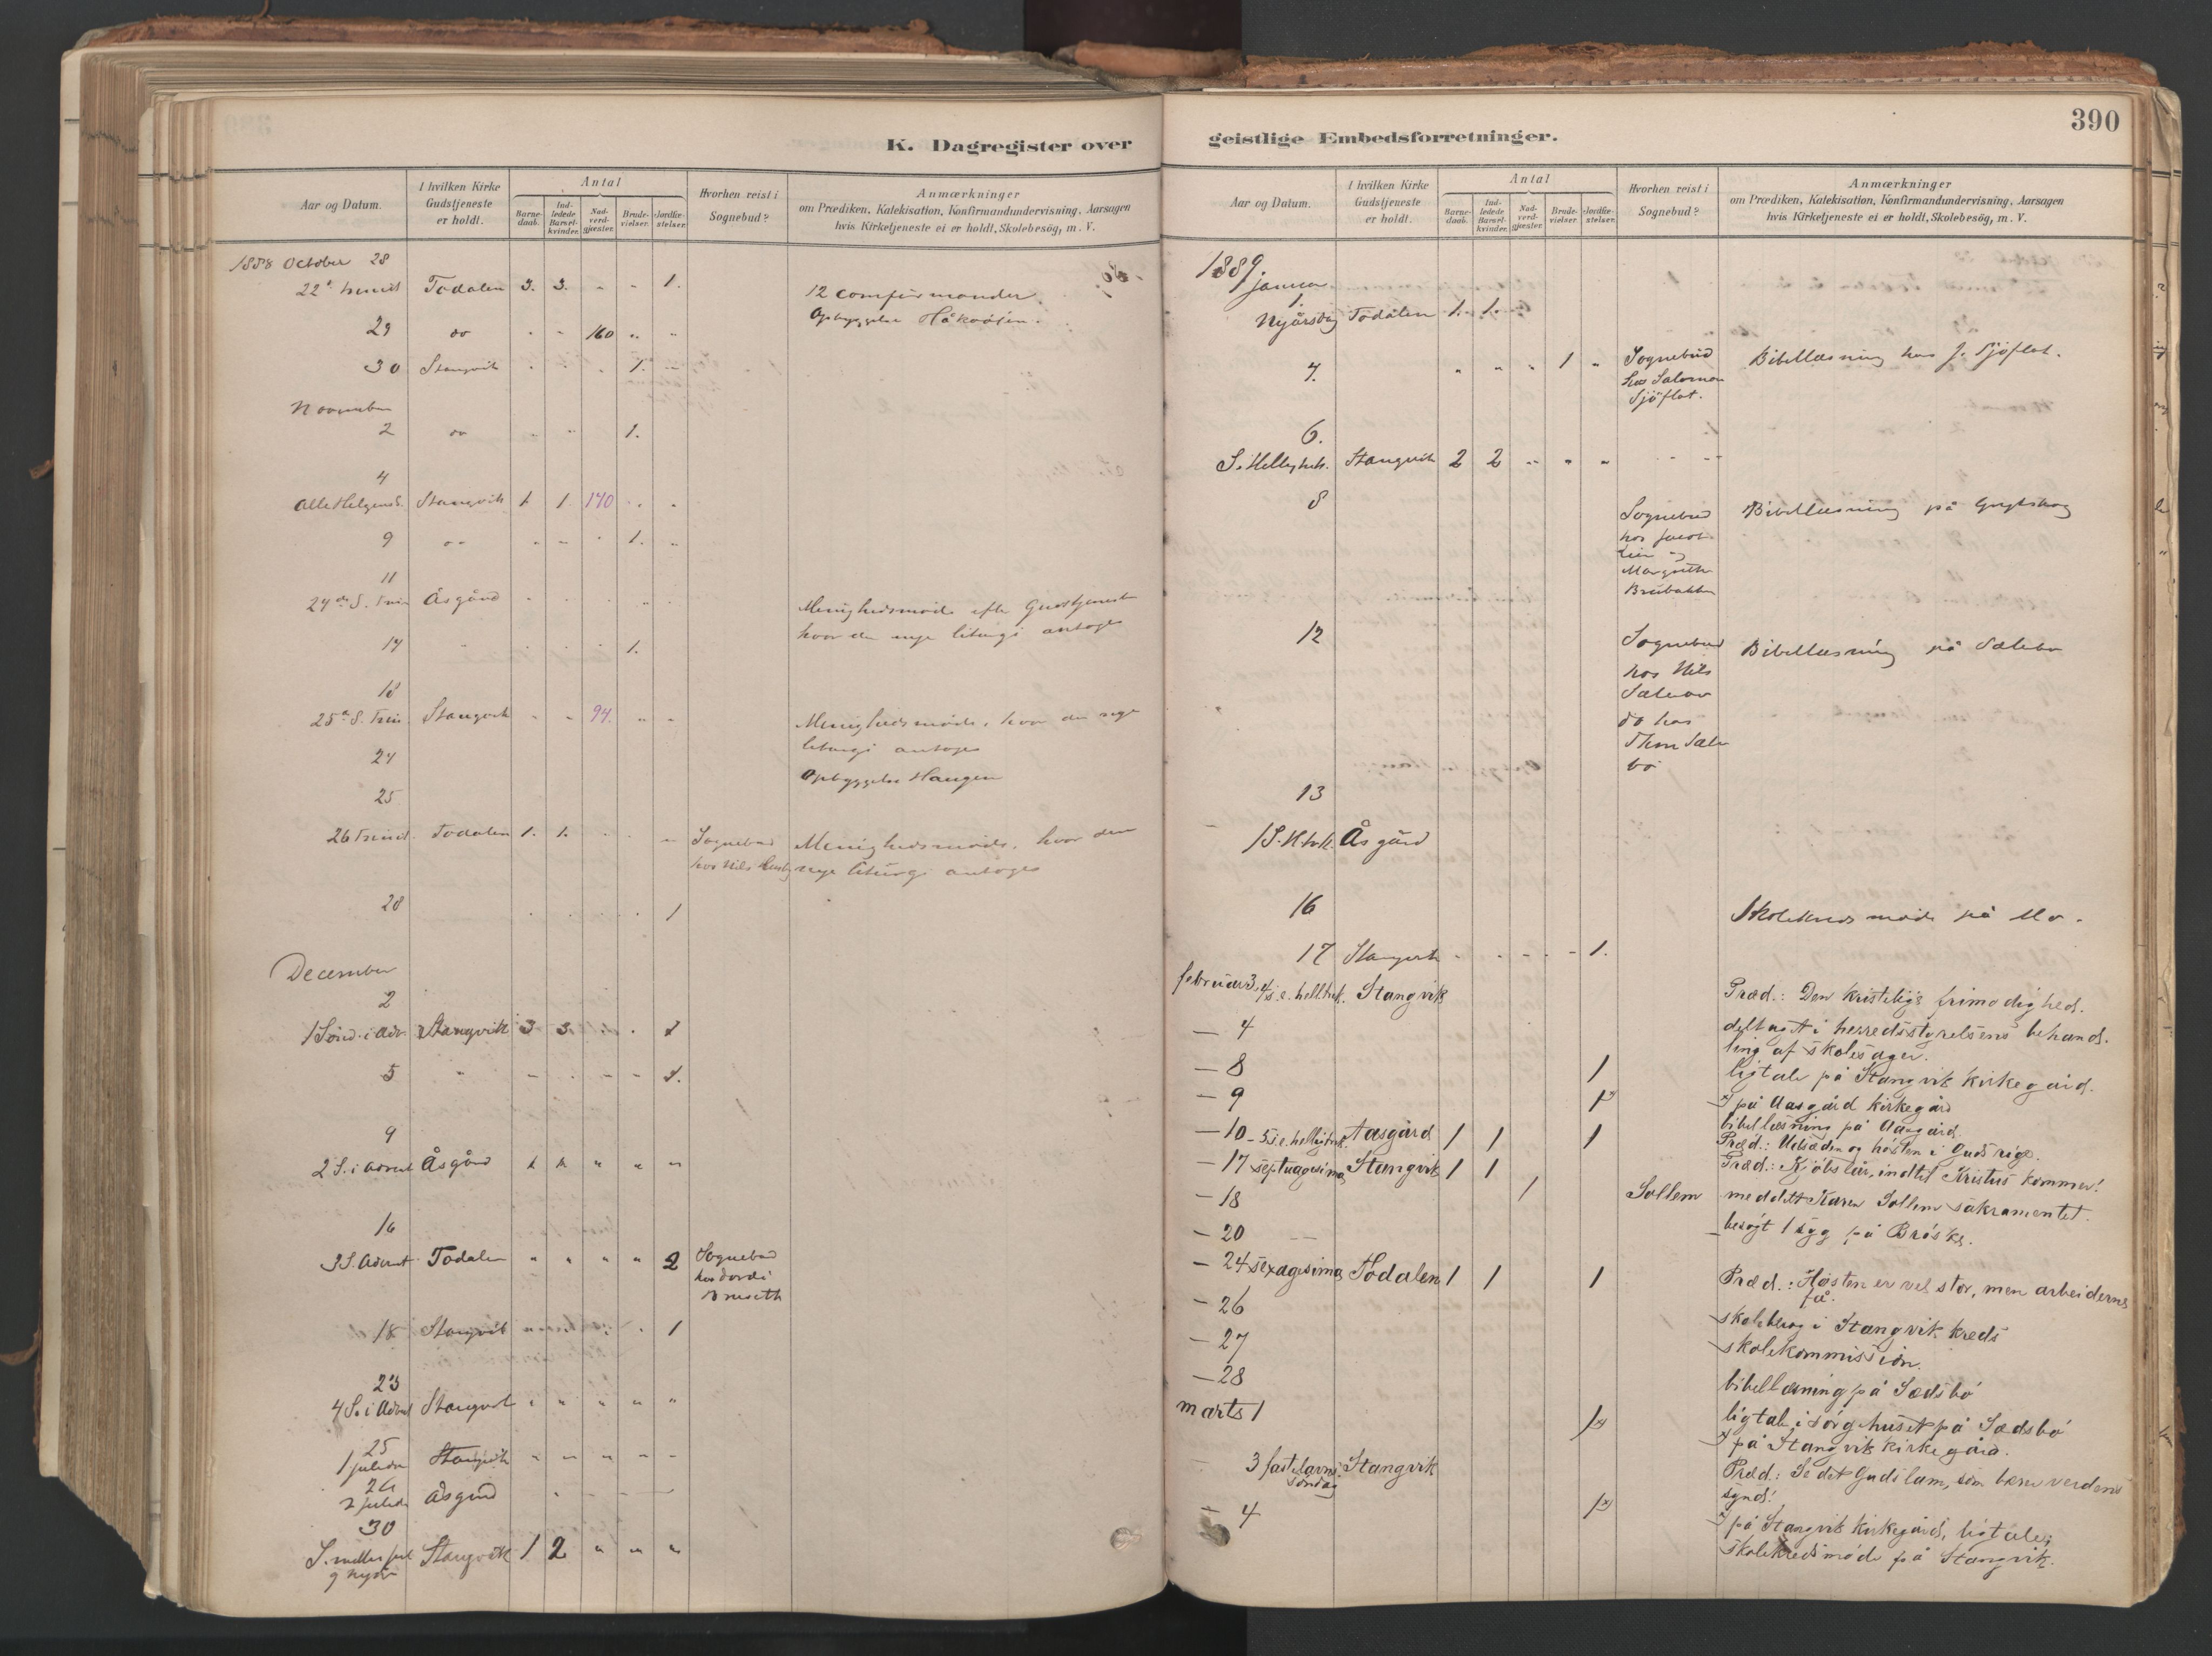 390
K. Dagregister over
geistlige Embedsforretninger.
Aar og Datum.
I hvilken Kirke Gudstjeneste er holdt.
Antal
Barne-daab.
Ind-ledede Barsel-kvinder.
Nad-verd-gjæster.
Brude-vielser.
Jordfæ-stelser.
Hvorhen reist i Sognebud?
Anmærkninger
om Prædiken, Katekisation, Konfirmandundervisning, Aarsagen
hvis Kirketjeneste ei er holdt, Skolebesög, m. V.
1888 October 28
22d Todalen 3. 3. " " 1. 12 comfirmander.
Opbyggelse
29 do " " 160 " "
30 Stangvik " " " 1. "
November
2 do " " 1.
4
Alle Helgensd. Stangvik 1 1 140 " "
9 do " " " 1. "
11
24de S. Trin Åsgård Menighedsmöde efter Gudstjenesten
hvor den nye liturgi antoges
14 " 1.
18
25d S. Trin. Stangvik " " 94. " " Menighedsmöde, hvor den nye
liturgi antoges
24
Opbyggelse Haugen
25
26 Trinit. Todalen 1. 1. " " " Sognebud Menighedsmöde, hvor den
hos Nils nye liturgi antoges
28 1
December
2
1 Sönd. i Adv. Stangvik 3 3 " " 1
5 " 1.
9
2 S. i Advent Åsgård 1 1 " " "
16
3 S. Advent Todalen " " " " 2 Sognebud
hos Dordi
Bruseth
18 Stangvik 1
23
4 S. i Advent Stangvik " " " " "
25
1 juledag Stangvik " " " " "
26
2 juledag Åsgård
30
S. mellem jul Stangvik 1 2 " " "
og nytår
Aar og Datum.
I hvilken Kirke Gudstjeneste er holdt.
Antal
Barne-daab.
Ind-ledede Barsel-kvinder.
Nad-verd-gjæster.
Brude-vielser.
Jordfæ-stelser.
Hvorhen reist i Sognebud?
Anmærkninger
om Prædiken, Katekisation, Konfirmandundervisning, Aarsagen
hvis Kirketjeneste ei er holdt, Skolebesög, m. V.
1889.
januar
1.
Nyårsdag Todalen 1. 1.
4. " " " 1 " Sognebud Bibellæsning hos J. Sjöflot.
hos Salomon
Sjöflot.
6.
S. i Helligtrek. Stangvik 2 2 " " "
8 Sognebud Bibellæsning på
hos Jacob
Lien og
Margrethe
Brubakken
12 Sognebud Bibellæsning på Sæterbø
hos Nils
do hos
Thore Sæter
bö
13
1 S. H.trek. Åsgård
16 Skolekredsmöde på Mo.
17 Stangvik " " " " 1.
februar 3. 4/s. e. hell.trek. Stangvik Præd.: Den kristelige frimodighed.
— 4 deltaget i herredsstyrelsens behand-
ling af skolesager.
— 8 1 ligtale på Stangvik kirkegård.
— 9 1x) x) på Aasgård kirkegård
bibellæsning på Aasgård.
— 10 – 5 s. e. helligtrek. Aasgård 1 1 1 Præd.: Udsæden og hösten i Guds rige.
— 17 septuagesima Stangvik 1 1 Præd.: Kjöbslår, indtil Kristus kommer!
— 18 1 Sollem meddelt Karen Sollem sakramentet.
— 20 besögt 1 syg på Bröske.
— 24 sexagesima Todalen 1 1 1 Præd.: Hösten er vel stor, men arbeiderne
få.
— 26 skolebesög i Stangvik kreds
— 27 skolekommission.
— 28 bibellæsning på Sædsbö
marts 1 1x) ligtale i sörgehuset på Sædsbö
x) på Stangvik kirkegård.
3 fastelavns Stangvik Præd.: Se det Guds lam, som bær verdens
söndag synd!
— 4 1x) x) på Stangvik kirkegård, ligtale;
skolekredsmöde på Stangvik.